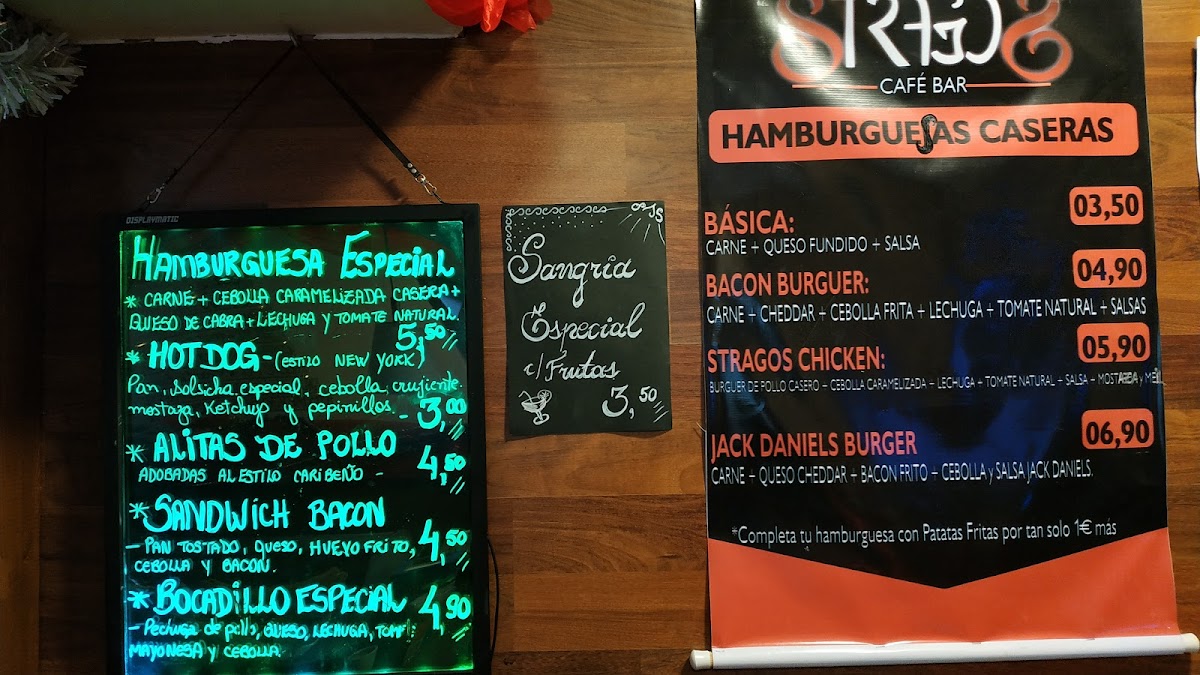 DISPLAYMATIC
HAMBURGUESA ESPECIAL
* CARNE + CEBOLLA CARAMELIZADA CASERA +
QUESO DE CABRA + LECHUGA Y TOMATE NATURAL.
5,50
* HOT DOG - (ESTILO NEW YORK)
Pan, salsicha especial, cebolla crujiente.
mostaza, Ketchup y pepinillos. - 3,00
* ALITAS DE POLLO
4,50
ADOBADAS AL ESTILO CARIBEÑO -
* SANDWICH BACON
- PAN TOSTADO, QUESO, HUEVO FRITO, 4,50
CEBOLLA Y BACON.
* BOCADILLO ESPECIAL 4,90
- Pechuga de pollo, QUESO, LECHUGA,
MAYONESA Y CEBOLLA
Sangria
Especial
c/Frutas
3,50
STRAGOS
CAFÉ BAR
HAMBURGUESAS CASERAS
BÁSICA: 03,50
CARNE + QUESO FUNDIDO + SALSA
BACON BURGUER: 04,90
CARNE + CHEDDAR + CEBOLLA FRITA + LECHUGA + TOMATE NATURAL + SALSAS
STRAGOS CHICKEN: 05,90
BURGUER DE POLLO CASERO + CEBOLLA CARAMELIZADA + LECHUGA + TOMATE NATURAL + SALSA +
JACK DANIELS BURGER 06,90
CARNE + QUESO CHEDDAR + BACON FRITO + CEBOLLA y SALSA JACK DANIELS.
*Completa tu hamburguesa con Patatas Fritas por tan solo 1€ más